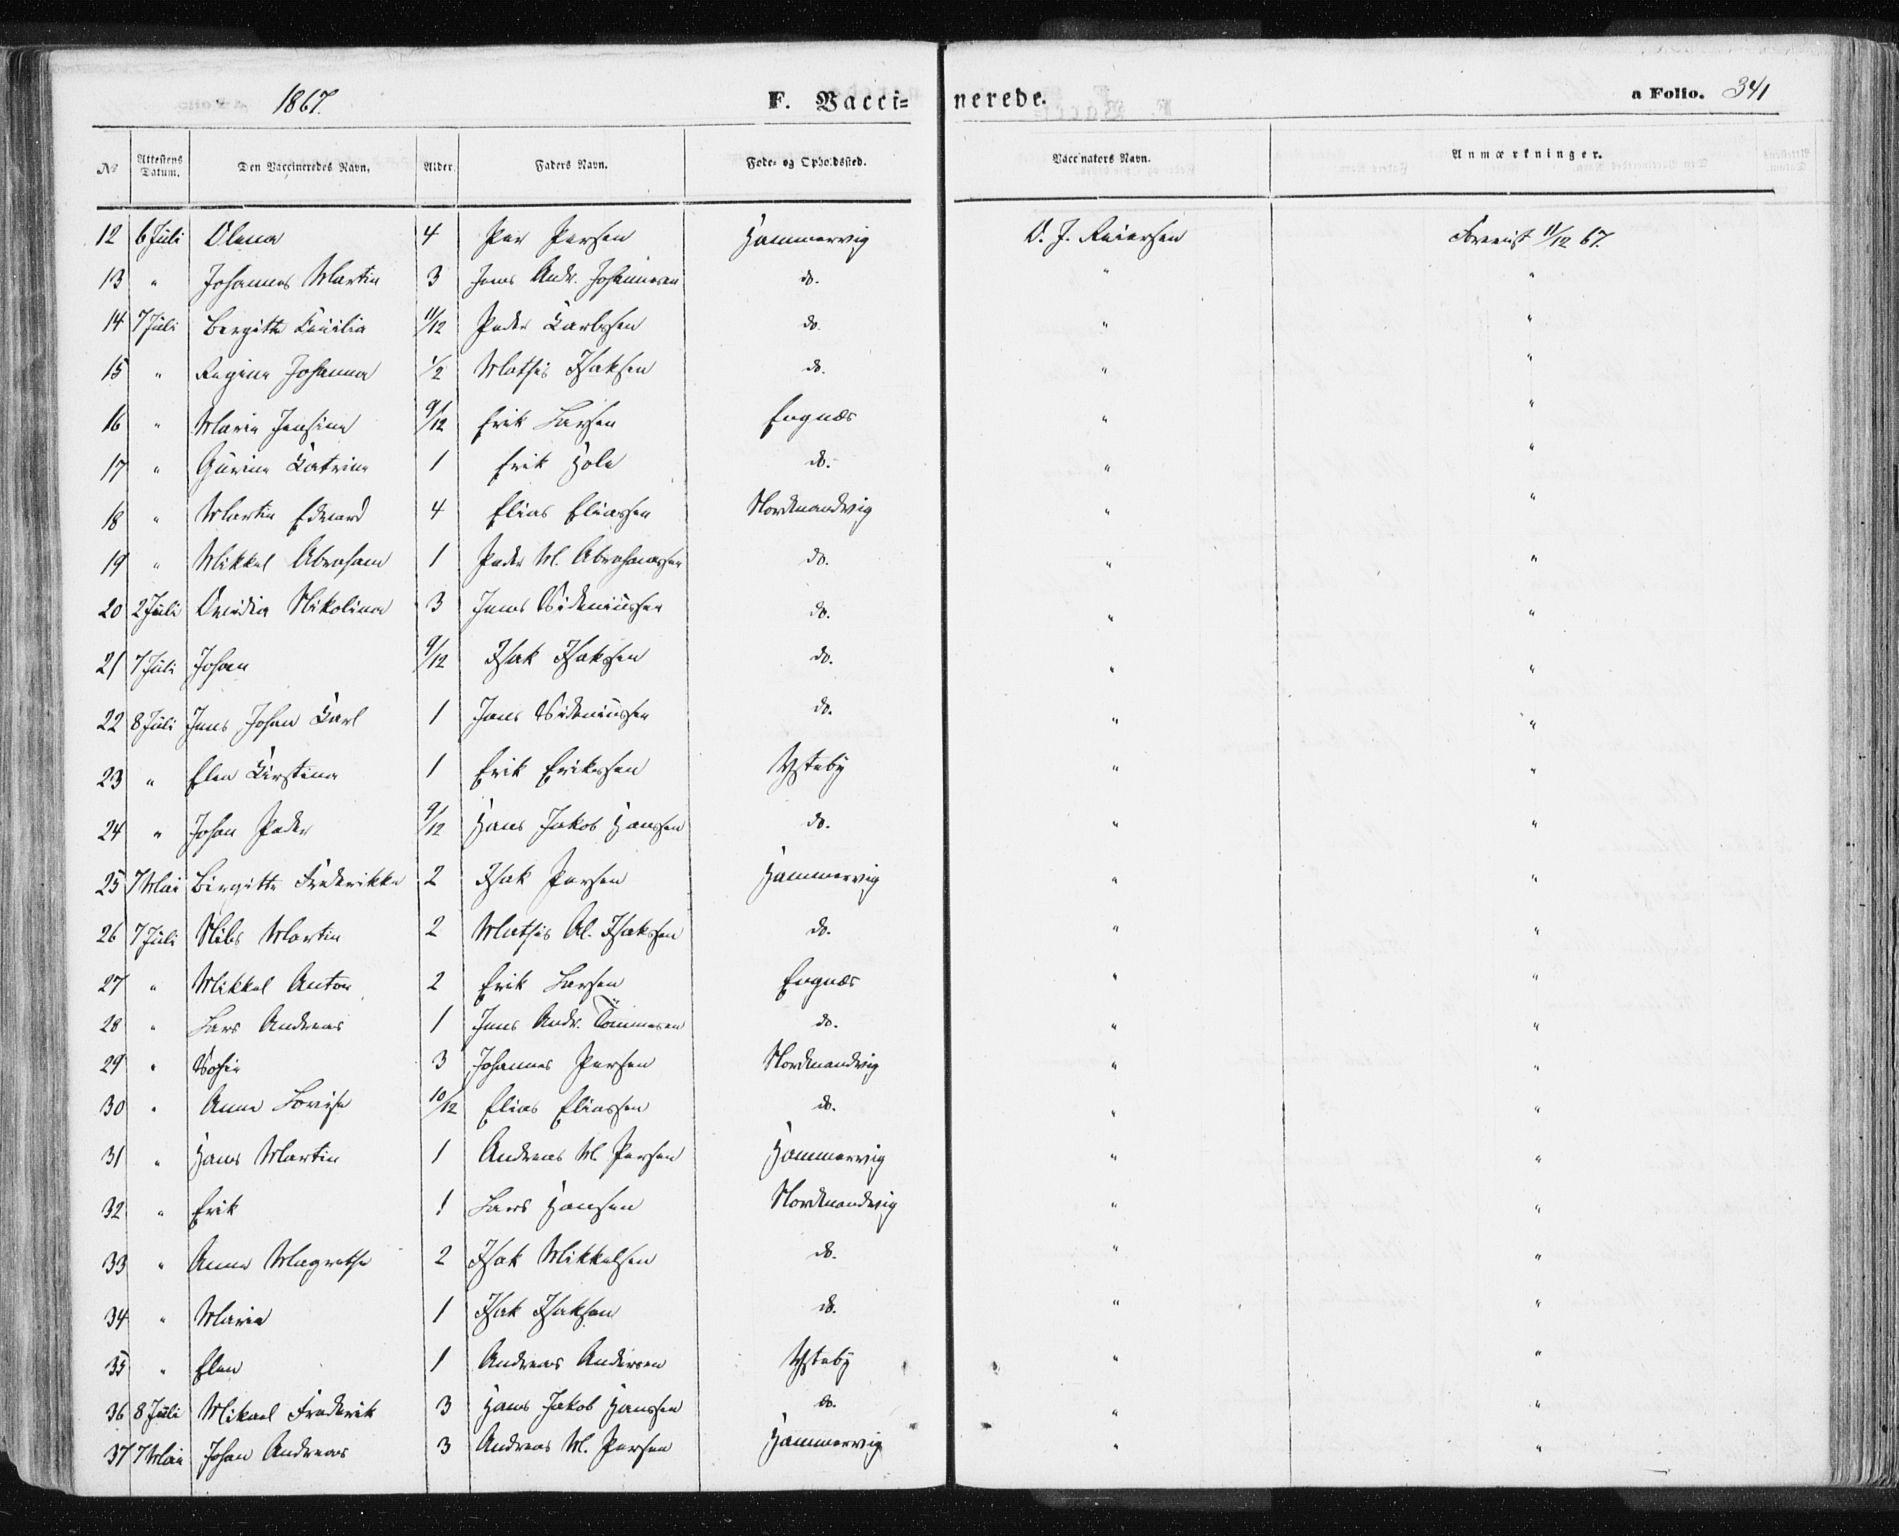 1867. F. Vaccinerede. a Folio. 341
No Attestens Datum. Den Vaccineredes Navn. Alder Faders Navn. Føde- og Opholdssted. Vaccinators Navn. Anmærkninger.
12 6 Juli Olena 4 Per Persen Hammervig O. J. Reiersen Foreviist 11/12 67.
13 " Johannes Martin 3 Jens Andr. Johannesen do. " "
14 7 Juli Bergitte Cecilia 11/12 Peder Carlssen do. " "
15 " Regine Johanna 1/2 Mathis Isaksen do. " "
16 " Marie Jensine 9/12 Erik Larsen Engnæs " "
17 " Gurine Catrine 1 Erik Hole do. " "
18 " Martin Edvard 4 Elias Eliassen Nordmandvig " "
19 " Mikkel Abraham 1 Peder M. Abrahamssen do. " "
20 2 Juli Ovidia Nikolina 3 Jens Sideniussen do. " "
21 7 Juli Johan 9/12 Isak Isakssen do. " "
22 8 Juli Jens Johan Carl 1 Jens Sideniussen do. " "
23 " Elen Kirstina 1 Erik Erikssen Ysteby " "
24 " Johan Peder 9/12 Hans Jakob Hanssen do. " "
25 7 Mai Birgitte Frederikke 2 Isak Persen Hammervig " "
26 7 Juli Nils Martin 2 Mathis Al. Isakssen do. " "
27 " Mikkel Anton 2 Erik Larsen Engnæs " "
28 " Lars Andreas 1 Jens Andr. Tömmesen do. " "
29 " Sofie 3 Johannes Persen Nordmandvig " "
30 " Anne Lovise 10/12 Elias Eliassen do. " "
31 " Hans Martin 1 Andreas M. Persen Hammervig " "
32 " Erik 1 Lars Hansen Nordmandvig " "
33 " Anne Magrethe 2 Isak Mikkelsen do. " "
34 " Marie 1 Isak Isaksen do. " "
35 " Elen 1 Andreas Andersen Ysteby " "
36 8 Juli Mikael Frederik 3 Hans Jakob Hanssen do. " "
37 7 Mai Johan Andreas 3 Andreas M. Persen Hammervig " "